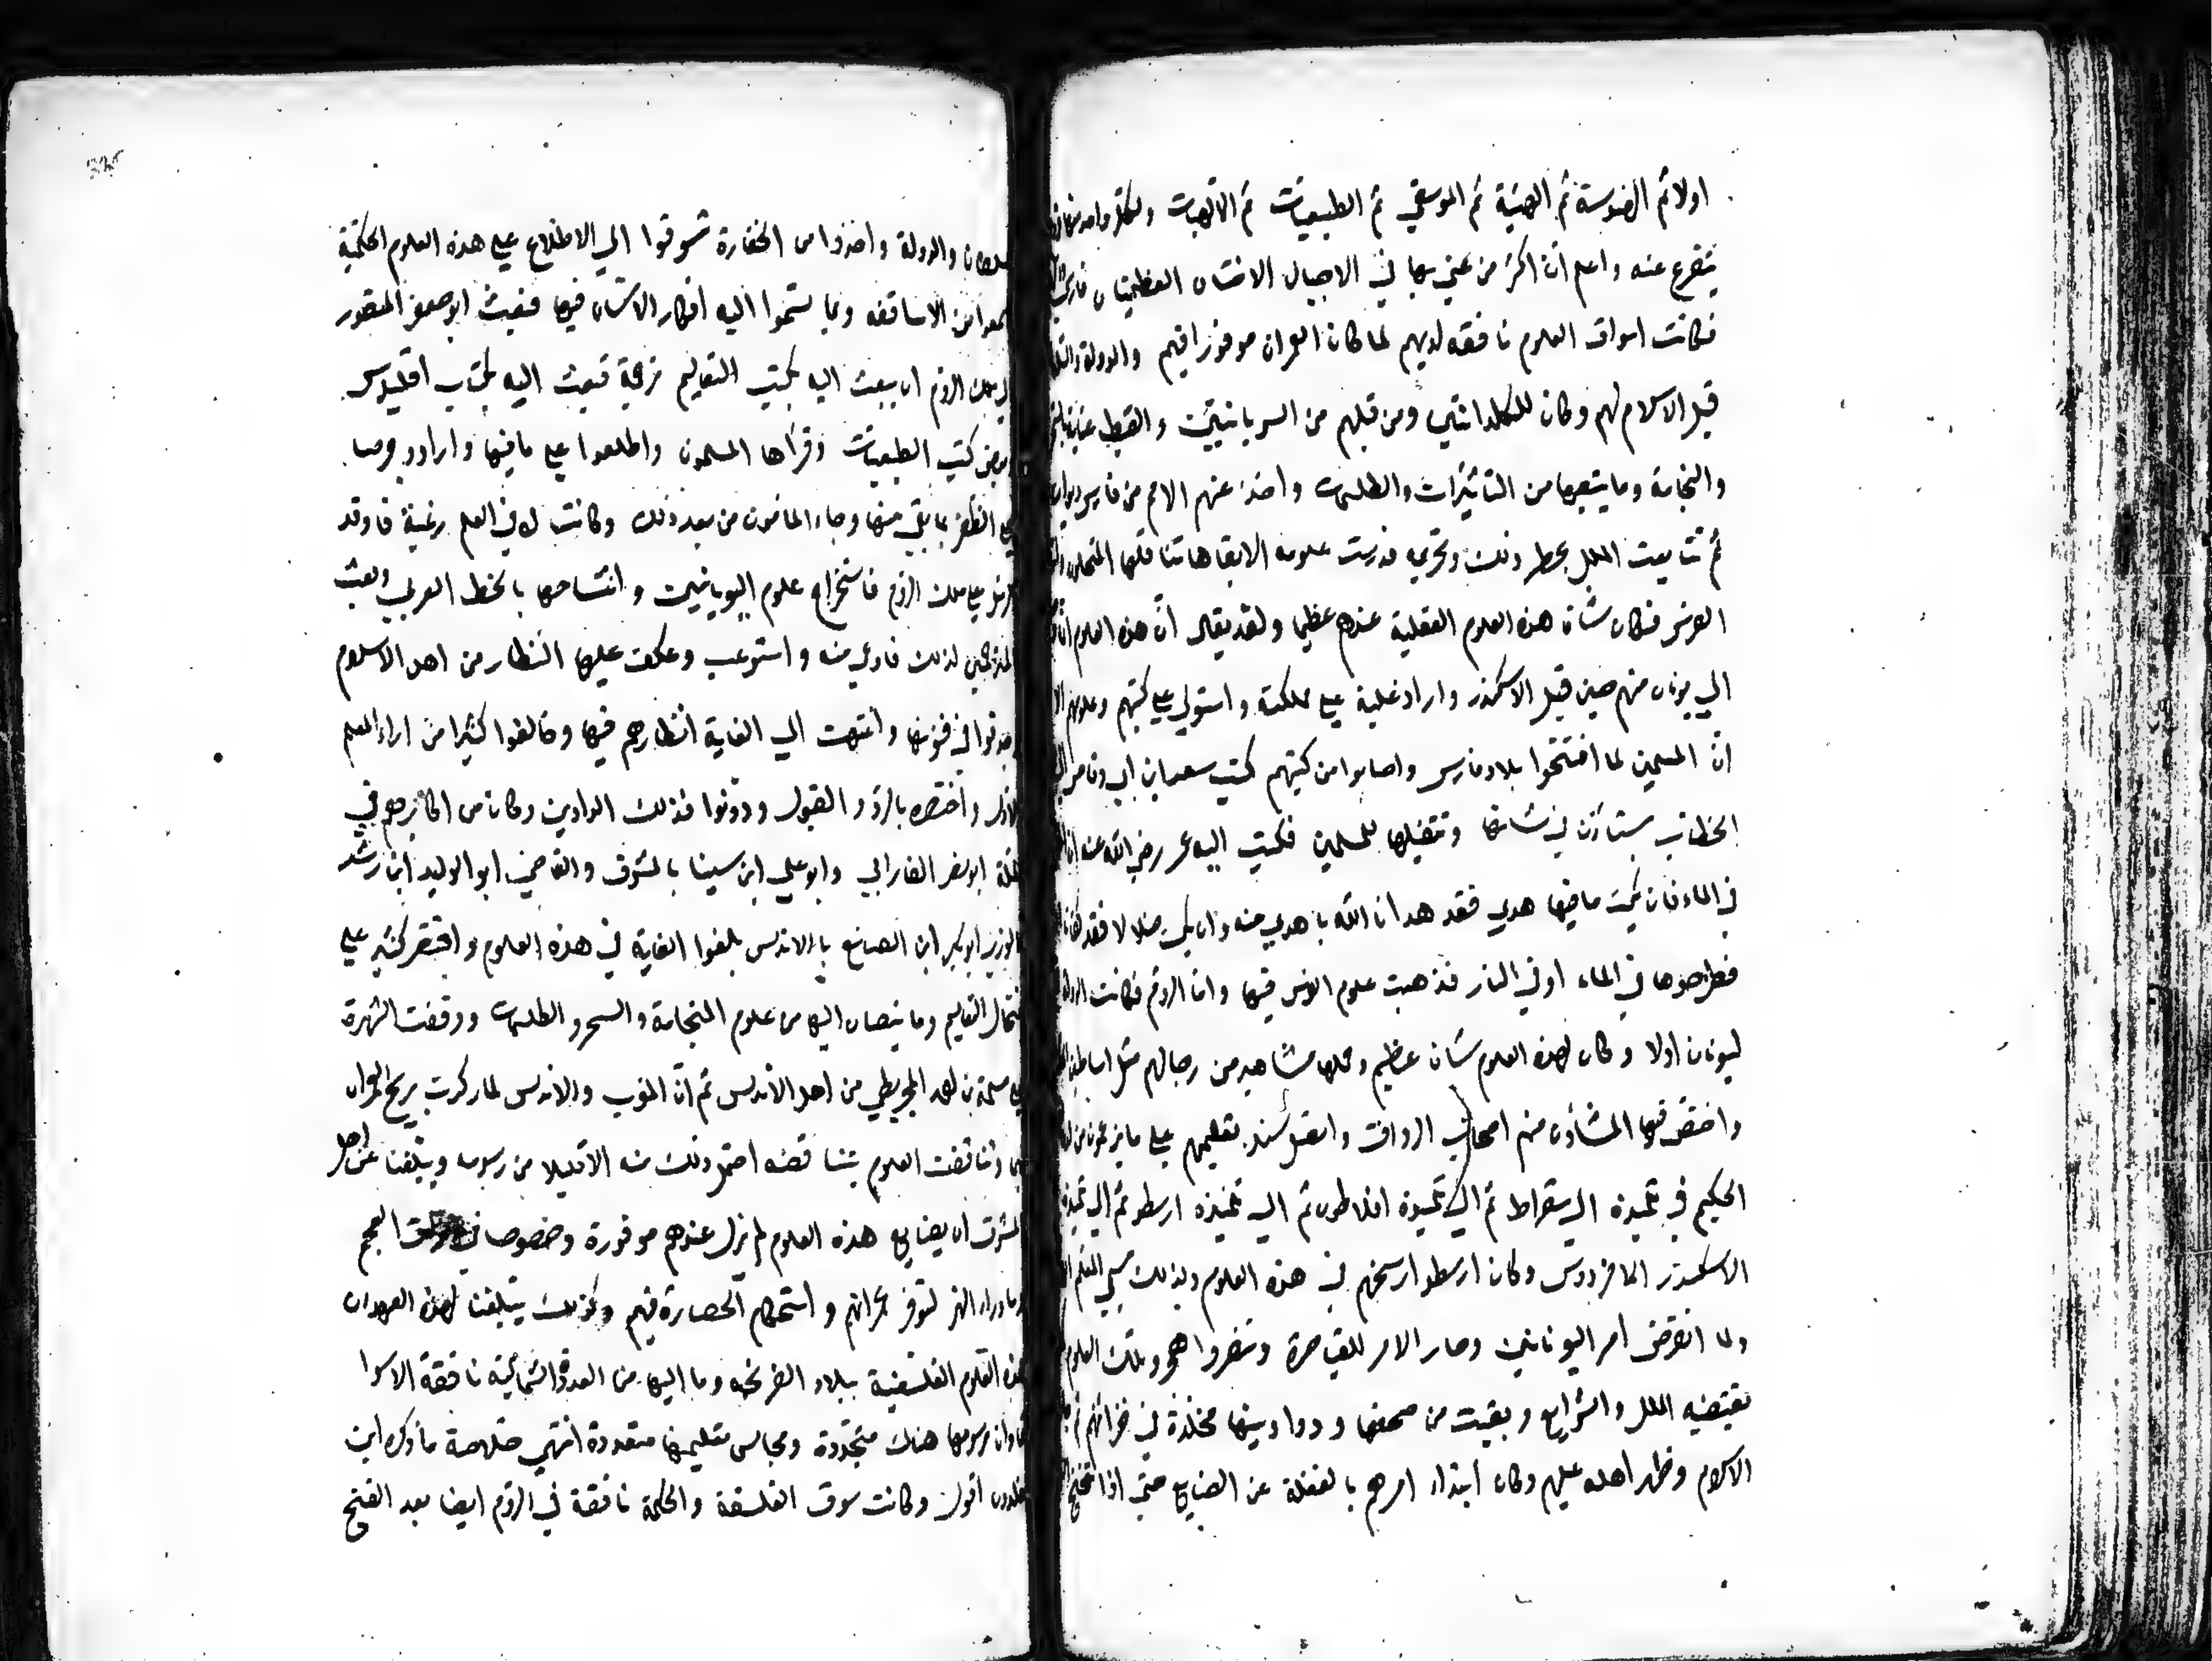 اولا ثم الهندسة ثم الهيئة ثم الموسيقي ثم الطبيعيات ثم الالهيات ولكل واحد منها فروع
يتفرع عنه واعلم ان اكثر من عني بها في الاجيال الامتان العظيمتان فارس
فكانت اسواق العلوم نافقه لديهم لما كان العمران موفورا فيهم والدولة والسلطان
قبل الاسلام لهم وكان للكلدانيين ومن قبلهم من السريانيين والقبط عناية بالسحر
والنجامة وما يتبعها من التأثيرات والطلسمات واخذ عنهم الامم من فارس ويونان
ثم تتابعت الملل بحظر ذلك وتحريمه فدرست علومه الا بقايا تناقلها المنتحلون
الفرس فكان شان هذه العلوم العقلية عندهم عظيما ولقد يقال ان هذه العلوم انما
الي يونان منهم حين قتل الاسكندر دارا وغلبه علي مملكته واستولي علي كتبهم وعلومهم الا
ان المسلمين لما افتتحوا بلاد فارس واصابوا من كتبهم كتب سعد ابن ابي وقاص الي
الخطاب يستأذن في شانها وتنفيلها للمسلمين فكتب اليه عمر رضي الله عنه ان
في الماء فان يكن ما فيها هدي فقد هدانا الله باهدي منه وان يكن ضلالا فقد كفانا
فطرحوها في الماء او في النار فذهبت علوم الفرس فيها واما الروم فكانت الدولة
ليونان اولا وكان لهذه العلوم شان عظيم وحملها مشاهير من رجالهم مثل اساطين
واختص فيها المشاؤن منهم اصحاب الرواق واتصل سند تعليمهم علي ما يزعمون من لدن
الحكيم في تلميذه الي سقراط ثم الي تلميذه افلاطون ثم الي تلميذه ارسطو ثم الي تلميذه
الاسكندر الافردوسي وكان ارسطو ارسخهم في هذه العلوم ولذلك سمي المعلم
ولما انقرض امر اليونانيين وصار الامر للقياصرة وتنصروا هجروا تلك العلوم
تقتضيه الملل والشرايع وبقيت من صحفها ودواوينها مخلدة في خزائنهم ثم جاء
الاسلام وظهر اهله عليهم وكان ابتداء امرهم بالغفلة عن الصنايع حتي اذا
السلطان والدولة واخذوا من الحضارة تشوقوا الي الاطلاع علي هذه العلوم الحكمية
سمعوا من الاساقفه وبما تسموا اليه افكار الانسان فيها فبعث ابو جعفر المنصور
الي ملك الروم ان يبعث اليه بكتب التعاليم مترجمة فبعث اليه بكتاب اقليدس
وبعض كتب الطبيعيات وقراها المسلمون واطلعوا علي ما فيها وازدادوا حرصا
علي الظفر بما بقي منها وجاء المامون من بعد ذلك وكانت له في العلم رغبة فاوفد
الرسل علي ملك الروم فاستخراج علوم اليونانيين وانتساخها بالخط العربي وبعث
المترجمين لذلك فاوعي منه واستوعب وعكف عليها النظار من اهل الاسلام
وحذقوا في فنونها وانتهت الي الغاية انظارهم فيها وخالفوا كثيرا من اراء المعلم
الاول واختصوه بالرد والقبول ودونوا في ذلك الدواوين وكان من اكابرهم في
الملة ابو نصر الفارابي وابو علي ابن سينا بالمشرق والقاضي ابو الوليد ابن رشد
والوزير ابو بكر ابن الصايغ بالاندلس بلغوا الغاية في هذه العلوم واقتصر كثير علي
انتحال التعاليم وما ينضاف اليها من علوم النجامة والسحر والطلسمات ووقفت الشهرة
علي مسلمة بن احمد المجريطي من اهل الاندلس ثم ان المغرب والاندلس لما ركدت ريح العمران
بهما وتناقصت العلوم بتناقصه اضمحل ذلك منه الا قليلا من رسومه ويبلغنا عن اهل
المشرق ان بضايع هذه العلوم لم تزل عندهم موفورة وخصوصا في عراق العجم
وما وراء النهر لتوفر عمرانهم واستحكام الحضارة فيهم وكذلك يبلغنا لهذا العهد ان
هذه العلوم الفلسفية ببلاد الفرنجه وما اليها من العدوة الشمالية نافقة الاسواق
وان رسومها هناك متجددة ومجالس تعليمها متعددة انتهي خلاصة ما ذكره ابن
خلدون اقول وكانت سوق الفلسفة والحكمة نافقة في الروم ايضا بعد الفتح